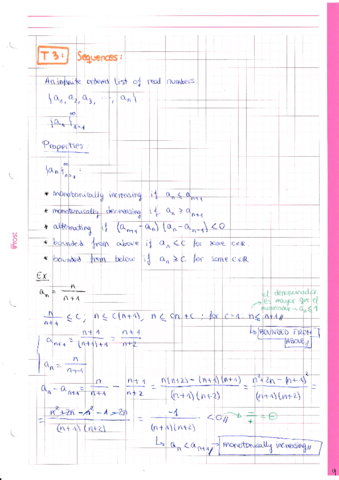 T3: Sequences:
An infinite ordered list of real numbers
{a₁, a₂, a₃, ..., aₙ}
{aₙ}ₙ₌₁^∞
Properties
{aₙ}ₙ₌₁^∞
* monotonically increasing if aₙ ≤ aₙ₊₁
* monotonically decreasing if aₙ ≥ aₙ₊₁
* alternating if (aₙ₊₁ - aₙ)(aₙ - aₙ₋₁) < 0
* bounded from above if aₙ < C for some C∈R
* bounded from below if aₙ ≥ C for some C∈R
Ex
aₙ = n/(n+1)
el denominador es mayor que el numerador
n/(n+1) ≤ C, n ≤ C(n+1), n ≤ Cn + C; for C=1 n ≤ n+1
↳ BOUNDED FROM ABOVE
aₙ₊₁ = (n+1)/((n+1)+1) = (n+1)/(n+2)
aₙ = n/(n+1)
aₙ - aₙ₊₁ = n/(n+1) - (n+1)/(n+2) = (n(n+2) - (n+1)(n+1))/((n+1)(n+2)) = (n²+2n - (n+1)²)/((n+1)(n+2)) =
= (n²+2n - n² - 1 - 2n)/((n+1)(n+2)) = -1/((n+1)(n+2)) < 0
↳ aₙ < aₙ₊₁ → monotonically increasing
9